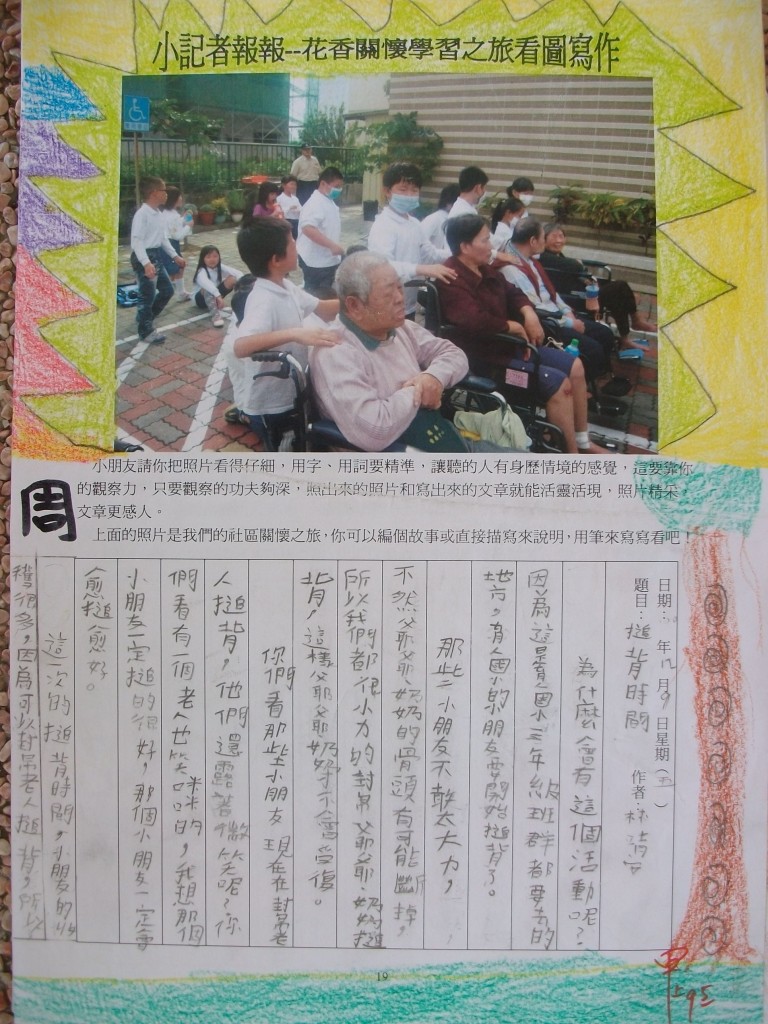 小記者報報--花香關懷學習之旅看圖寫作
小朋友請你把照片看得仔細，用字、用詞要精準，讓聽的人有身歷情境的感覺，這要靠你
的觀察力，只要觀察的功夫夠深，照出來的照片和寫出來的文章就能活靈活現，照片精采，
文章更感人。
上面的照片是我們的社區關懷之旅，你可以編個故事或直接描寫來說明，用筆來寫寫看吧！
周
日期： 年12月9日星期（五）
題目：搥背時間 作者：林
為什麼會有這個活動呢？
因為這是員國小三年級班群都要去的
地方，員國小的小朋友要開始搥背了。
那些小朋友不敢太大力，
不然爺爺、奶奶的骨頭有可能斷掉，
所以我們都很小力的封帛爺爺、奶奶搥
背，這樣爺爺、奶奶才不會受復。
你們看那些小朋友現在在封帛老
人搥背，他們還露著微笑呢？你
們看有一個老人也笑咪咪的，我想那個
小朋友一定搥的很好，那個小朋友一定會
愈搥愈好。
這一次的搥背時間，小朋友的收
穫很多，因為可以封帛老人搥背，所以
19
95